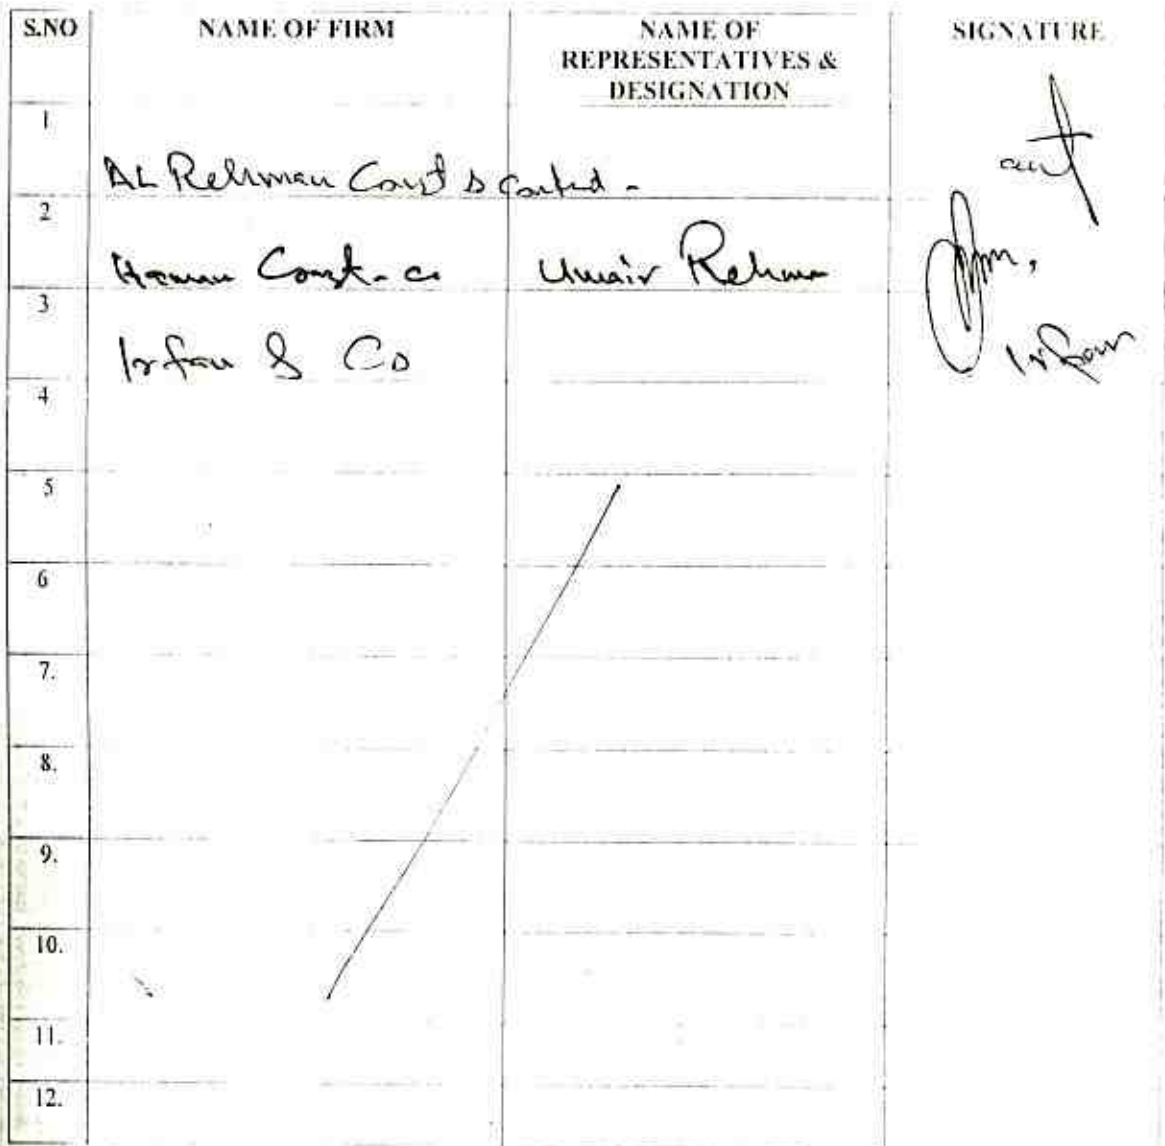 S.NO NAME OF FIRM NAME OF REPRESENTATIVES & DESIGNATION SIGNATURE
1 AL Rehman Const &
2 Const. co Umair Rehman
3 Irfan & Co Irfan
4
5
6
7.
8.
9.
10.
11.
12.